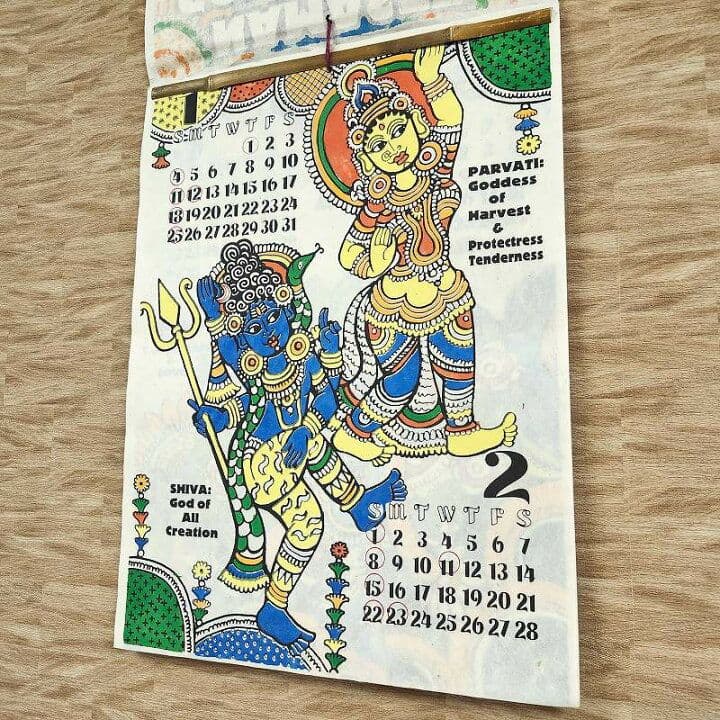 1
S M T W T F S
1 2 3
4 5 6 7 8 9 10
11 12 13 14 15 16 17
18 19 20 21 22 23 24
25 26 27 28 29 30 31
PARVATI:
Goddess
of
Harvest
&
Protectress
Tenderness
SHIVA:
God of
All
Creation
2
S M T W T F S
1 2 3 4 5 6 7
8 9 10 11 12 13 14
15 16 17 18 19 20 21
22 23 24 25 26 27 28